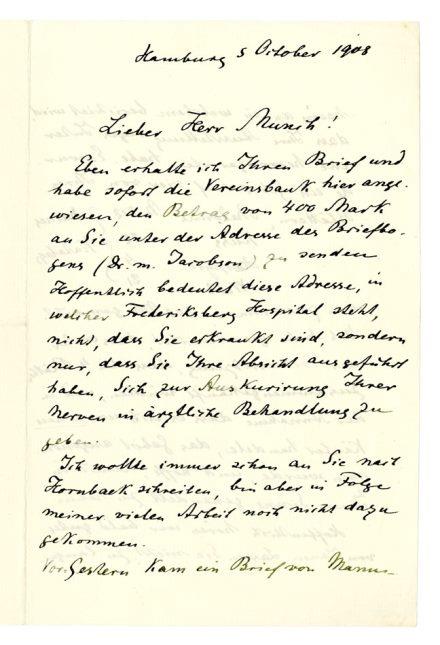 Hamburg 5 October 1908
Lieber Herr Munch!
Eben erhalte ich Ihren Brief und
habe sofort die Vereinsbank hier ange-
wiesen, den Betrag von 400 Mark
an Sie unter der Adresse des Briefbo-
gens (Dr. m. Jacobson) zu senden
Hoffentlich bedeutet diese Adresse, in
welcher Frederiksberg Hospital steht,
nicht, dass Sie erkrankt sind, sondern
nur, dass Sie Ihre Absicht ausgeführt
haben, Sich zur Auskurirung Ihrer
Nerven in ärztliche Behandlung zu
geben.
Ich wollte immer schon an Sie nach
Hornbaek schreiben, bin aber in Folge
meiner vielen Arbeit noch nicht dazu
gekommen.
Vor Gestern kam ein Brief von